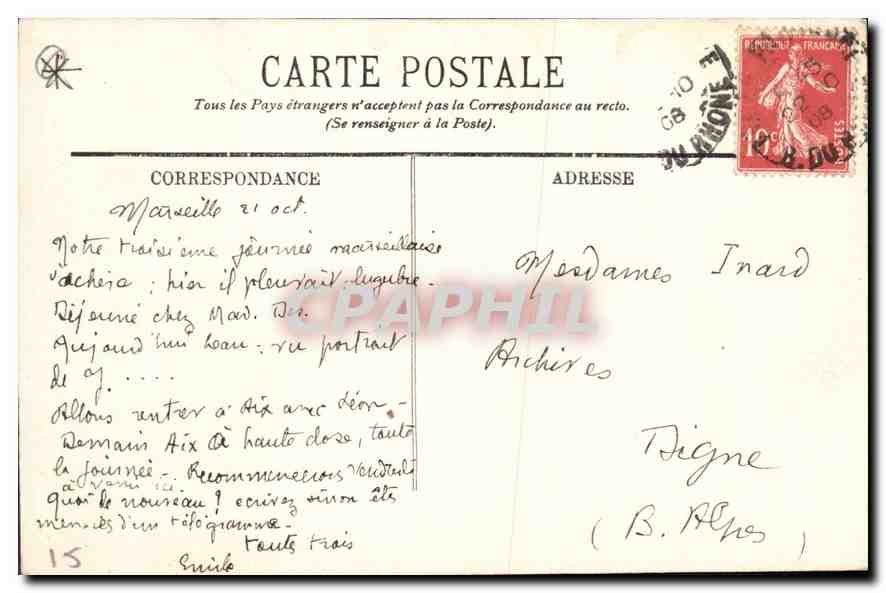 CARTE POSTALE
Tous les Pays étrangers n'acceptent pas la Correspondance au recto.
(Se renseigner à la Poste).
REPUBLIQUE FRANÇAISE
10c POSTES
B. DU RHONE
10
08
CORRESPONDANCE
Marseille 21 oct.
Notre troisième journée marseillaise
s'achève ; hier il pleuvait, lugubre.
Déjeuné chez Mad.
Aujourd'hui beau : vu portrait
de
Allons rentrer à Aix avec Léon.
Demain Aix à haute dose, toute
la journée. Recommencerons vendredi
à venir ici.
Quoi de nouveau ? écrivez sinon êtes
menacés d'un télégramme.
toutes trois
ADRESSE
Mesdames Inard
Archives
Digne
(B. Alpes)
15
CPAPHIL